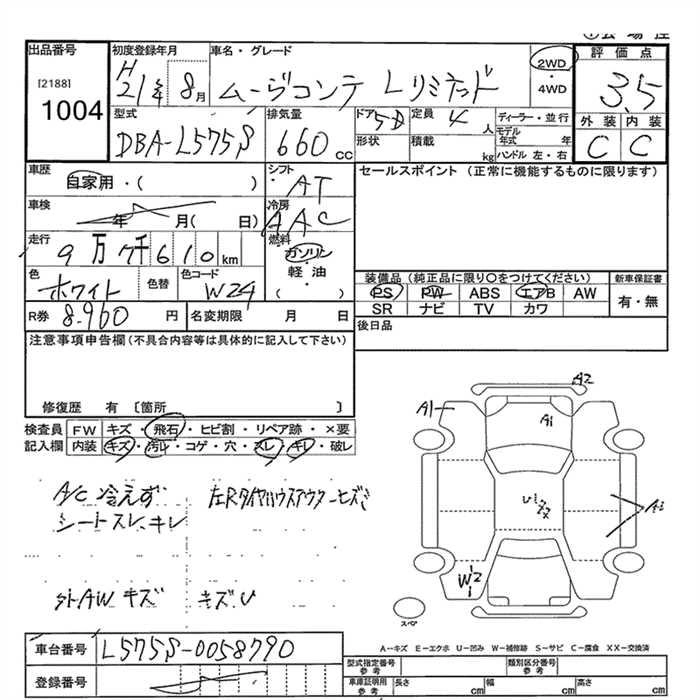 出品番号
[2188]
1004
初度登録年月
H
21年 8月
車名・グレード
ムーヴコンテ Lリミテッド
2WD
・
4WD
評価点
3.5
外装 内装
C C
型式
DBA-L575S
排気量
660 cc
ドア 5D
形状
定員 4 人
積載 kg
ディーラー・並行
モデル年式 年
ハンドル 左・右
車歴
自家用・( )
シフト
AT
セールスポイント (正常に機能するものに限ります)
車検
年 月( 日)
冷房
AAC
走行
9万7千610km
燃料
ガソリン
軽・油
( )
色
ホワイト
色替
色コード
W24
装備品(純正品に限り○をつけてください)
PS PW ABS エアB AW
SR ナビ TV カワ
新車保証書
有・無
R券 8,960 円
名変期限 月 日
後日品
注意事項申告欄(不具合内容等は具体的に記入して下さい)
修復歴 有 〔箇所 〕
検査員
記入欄
FW キズ・飛石・ヒビ割・リペア跡・×要
内装 キズ・汚レ・コゲ・穴・スレ・キレ・破レ
A/C 冷えず
シートスレ、キレ
左Rタイヤハウスアウターヒズミ
外AW キズ
キズ U
A2
A1
A1
W2
スペア
A-キズ E-エクボ U-凹み W-補修跡 S-サビ C-腐食 XX-交換済
車台番号 L575S-0058790
登録番号
型式指定番号
参考
類別区分番号
参考
車庫証明用
参考
長さ cm
幅 cm
高さ cm